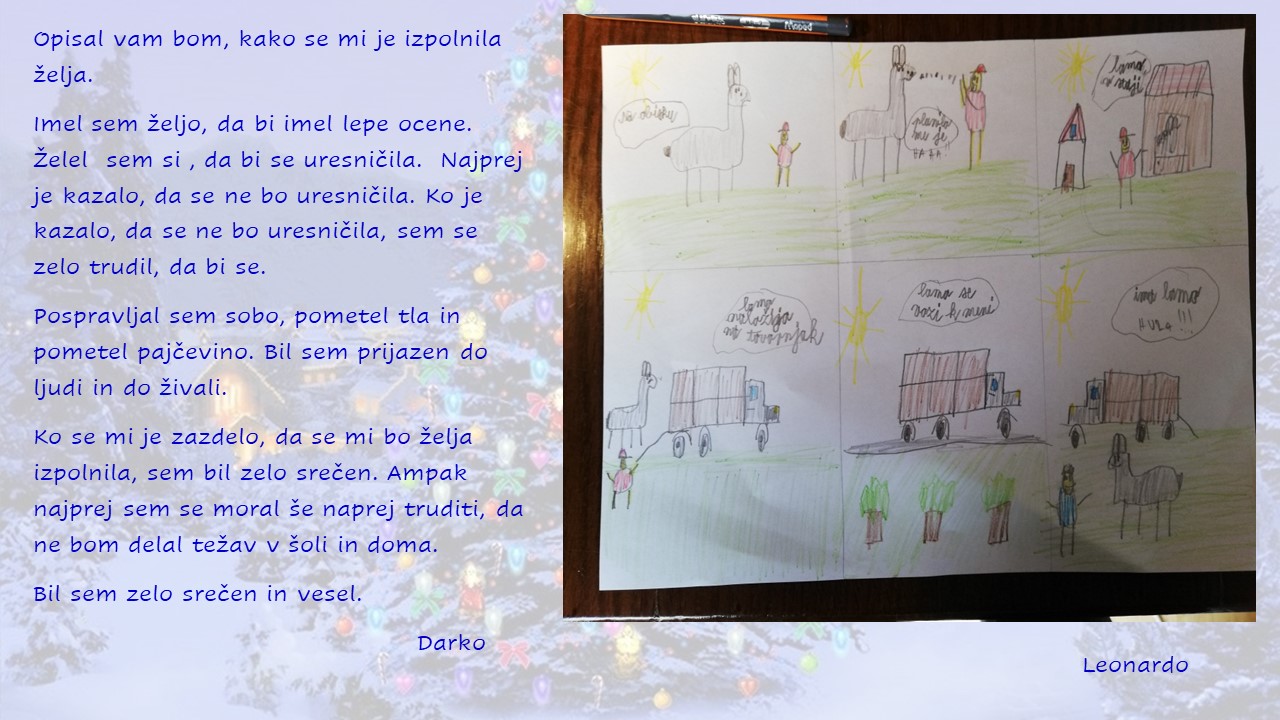 Opisal vam bom, kako se mi je izpolnila
želja.
Imel sem željo, da bi imel lepe ocene.
Želel sem si , da bi se uresničila. Najprej
je kazalo, da se ne bo uresničila. Ko je
kazalo, da se ne bo uresničila, sem se
zelo trudil, da bi se.
Pospravljal sem sobo, pometel tla in
pometel pajčevino. Bil sem prijazen do
ljudi in do živali.
Ko se mi je zazdelo, da se mi bo želja
izpolnila, sem bil zelo srečen. Ampak
najprej sem se moral še naprej truditi, da
ne bom delal težav v šoli in doma.
Bil sem zelo srečen in vesel.
Darko
na obisku
me je
HA HA !!
lama
lama
na tovornjak
lama se
vozi k meni
ima lamo
!!!
Leonardo